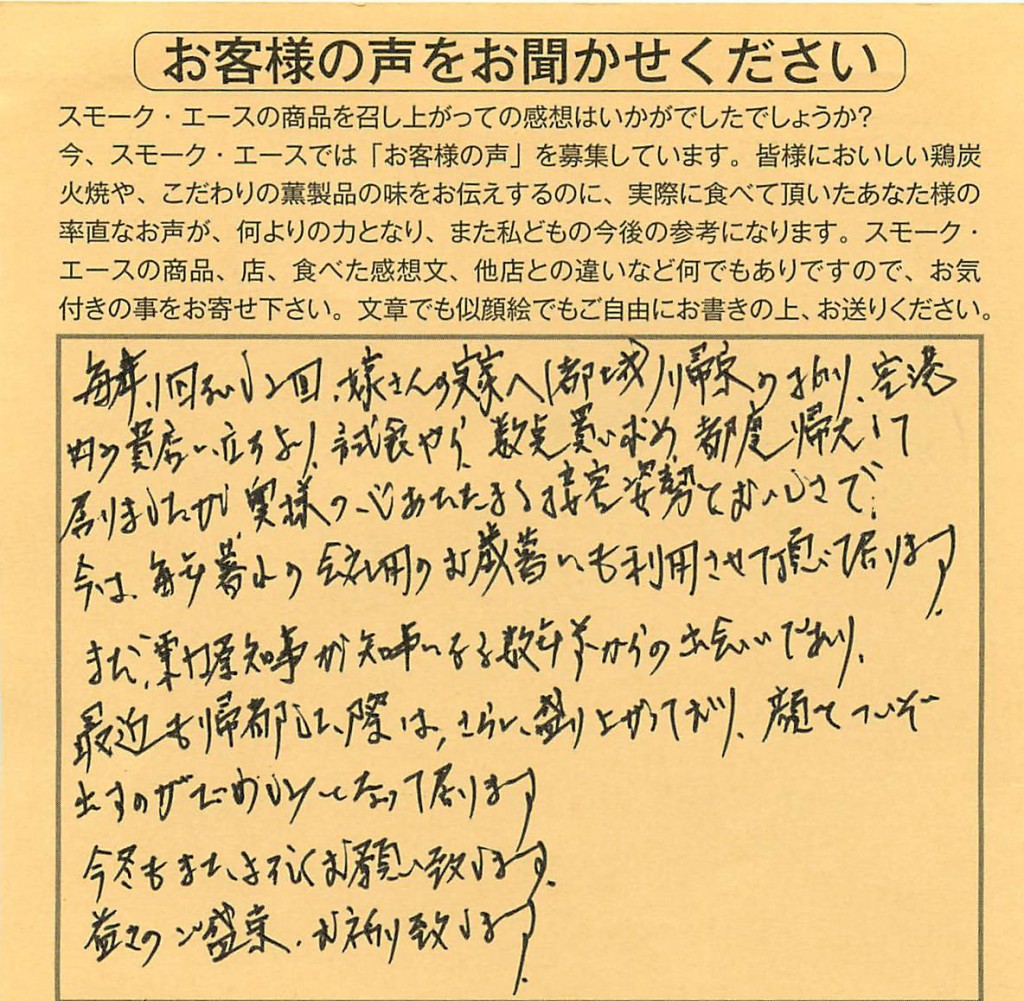 お客様の声をお聞かせください
スモーク・エースの商品を召し上がっての感想はいかがでしたでしょうか?
今、スモーク・エースでは「お客様の声」を募集しています。皆様においしい鶏炭
火焼や、こだわりの薫製品の味をお伝えするのに、実際に食べて頂いたあなた様の
率直なお声が、何よりの力となり、また私どもの今後の参考になります。スモーク・
エースの商品、店、食べた感想文、他店との違いなど何でもありですので、お気
付きの事をお寄せ下さい。文章でも似顔絵でもご自由にお書きの上、お送りください。
毎年、1回ないし2回、嫁さんの実家へ(都城)帰京のおり、空港
内の貴店に立ちより、試食やら、数点買い求め、都度帰えして
居りましたが、奥様の心あたたまる接客姿勢とおいしさで、
今は、毎年暮れの会社用のお歳暮にも利用させて頂いて居ります。
また、東国原知事が知事になる数年前からの出会いであり、
最近も帰都した際は、さらに、盛り上がっており、顔をついぞ
出すのがたのしみとなって居ります
今冬もまた、よろしくお願い致します。
益々のご盛栄、お祈り致します。